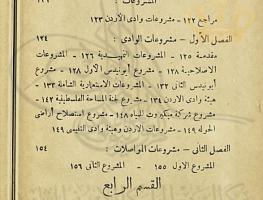 مراجع ١٢٢ - مشروعات وادى الأردن ١٢٣
الفصل الأول - مشروعات الوادى : ١٢٤
مقدمة ١٢٥ - المشروعات التمهيدية ١٢٦ - المشروعات
الاصلاحية ١٢٨ - مشروع أيونيدس الأول ١٢٨ - مشروع
أيونيدس الثانى ١٣٢ - المشروعات الاستعمارية الشاملة ١٣٣ -
هيئة وادى الاردن ١٣٤ - مشروع لجنة المساحة الفلسطينية ١٤٢ -
مشروع شركة ميكوروت للمياه ١٤٨ - مشروع استصلاح أراضى
الحولة ١٤٩ - مشروعات الاردن وهيئة وادى التنيسى ١٤٩
الفصل الثانى - مشروعات المواصلات : ١٥٤
المشروع الاول ١٥٥ - المشروع الثانى ١٥٦
القسم الرابع